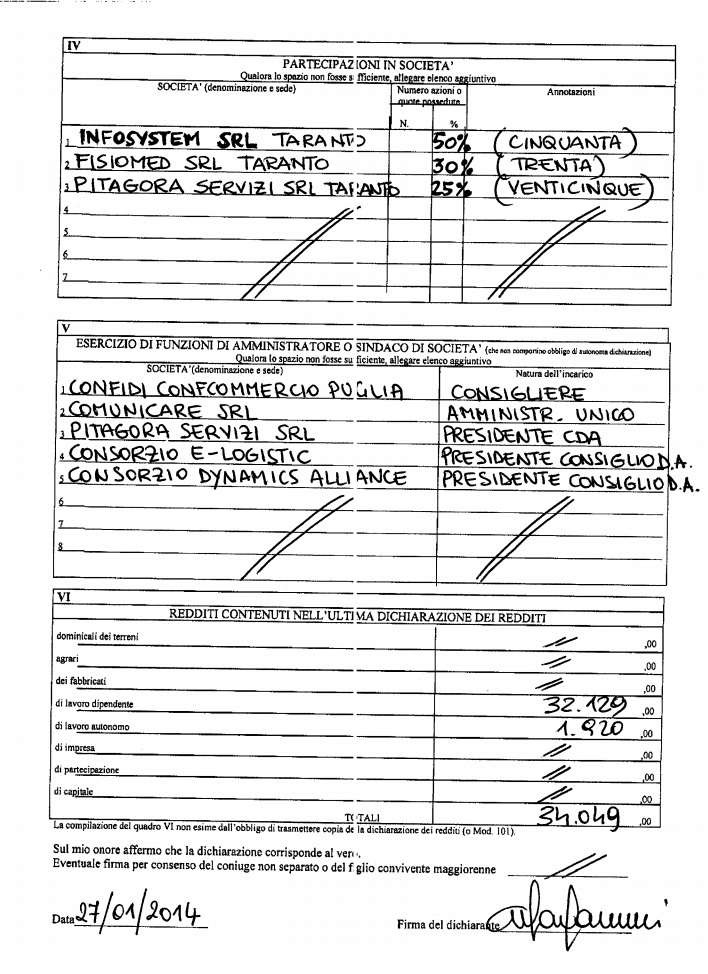 IV
PARTECIPAZIONI IN SOCIETA'
Qualora lo spazio non fosse sufficiente, allegare elenco aggiuntivo
SOCIETA' (denominazione e sede) Numero azioni o quote possedute Annotazioni
N. %
1 INFOSYSTEM SRL TARANTO 50% (CINQUANTA)
2 FISIOMED SRL TARANTO 30% (TRENTA)
3 PITAGORA SERVIZI SRL TARANTO 25% (VENTICINQUE)
4
5
6
7
V
ESERCIZIO DI FUNZIONI DI AMMINISTRATORE O SINDACO DI SOCIETA' (che non comportino obbligo di autonoma dichiarazione)
Qualora lo spazio non fosse sufficiente, allegare elenco aggiuntivo
SOCIETA' (denominazione e sede) Natura dell'incarico
1 CONFIDI CONFCOMMERCIO PUGLIA CONSIGLIERE
2 COMUNICARE SRL AMMINISTR. UNICO
3 PITAGORA SERVIZI SRL PRESIDENTE CDA
4 CONSORZIO E-LOGISTIC PRESIDENTE CONSIGLIO D.A.
5 CONSORZIO DYNAMICS ALLIANCE PRESIDENTE CONSIGLIO D.A.
6
7
8
VI
REDDITI CONTENUTI NELL'ULTIMA DICHIARAZIONE DEI REDDITI
dominicali dei terreni ,00
agrari ,00
dei fabbricati ,00
di lavoro dipendente 32.129 ,00
di lavoro autonomo 1.920 ,00
di impresa ,00
di partecipazione ,00
di capitale ,00
TOTALI 34.049 ,00
La compilazione del quadro VI non esime dall'obbligo di trasmettere copia de la dichiarazione dei redditi (o Mod. 101).
Sul mio onore affermo che la dichiarazione corrisponde al vero.
Eventuale firma per consenso del coniuge non separato o del figlio convivente maggiorenne
Data 27/01/2014 Firma del dichiarante